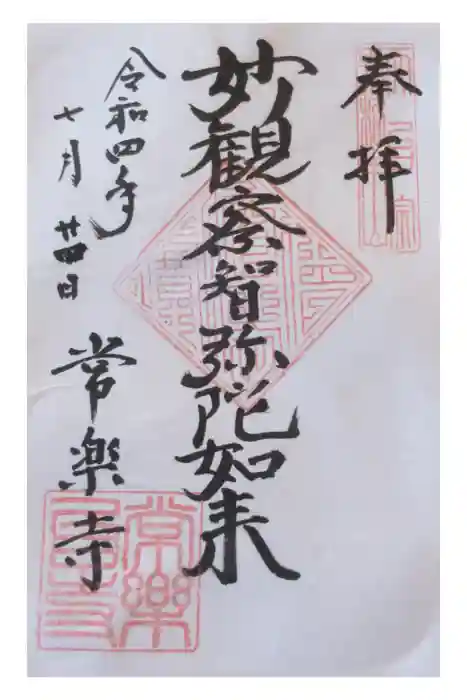 奉拝
妙観察智弥陀如来
令和四年
七月廿四日
常楽寺
常樂